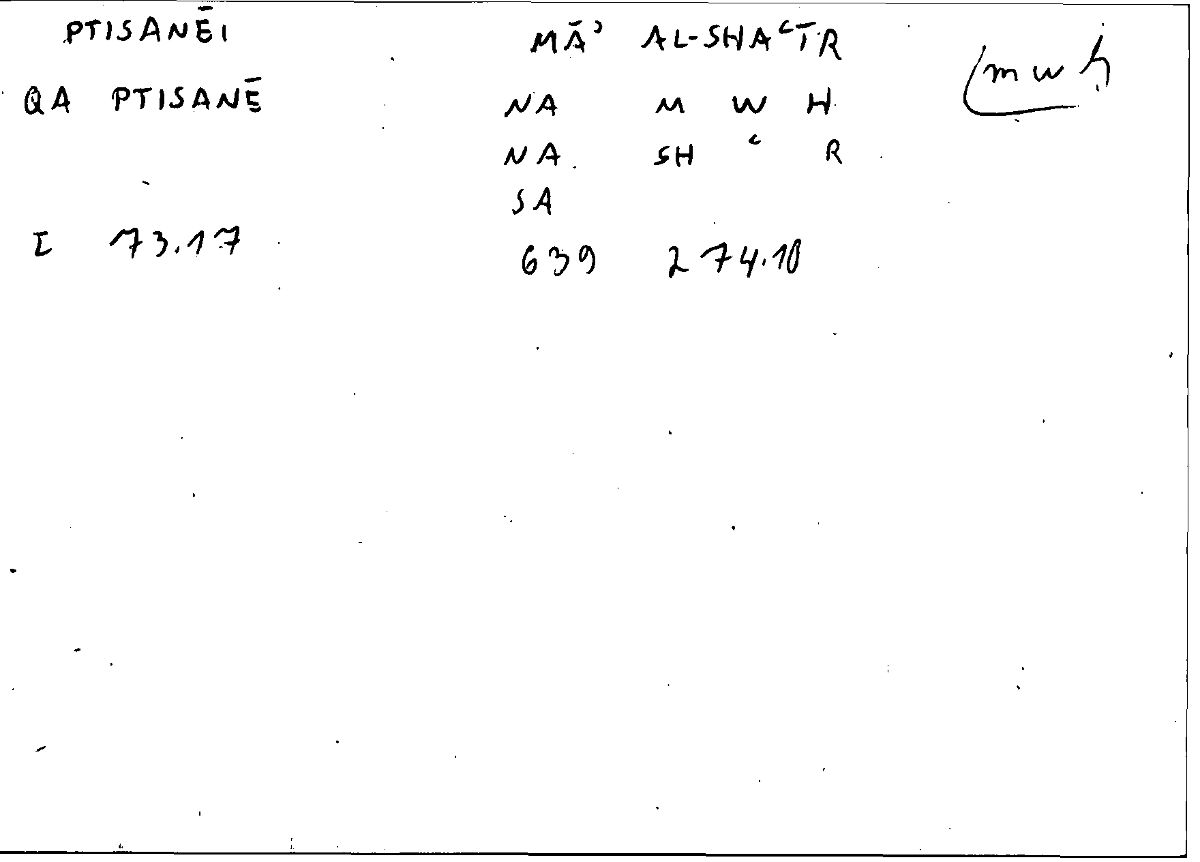 PTISANĒI MĀʾ AL-SHAʿĪR
QA PTISANĒ NA M W H mwh
NA SH ʿ R
SA
I 73.17 639 274.10